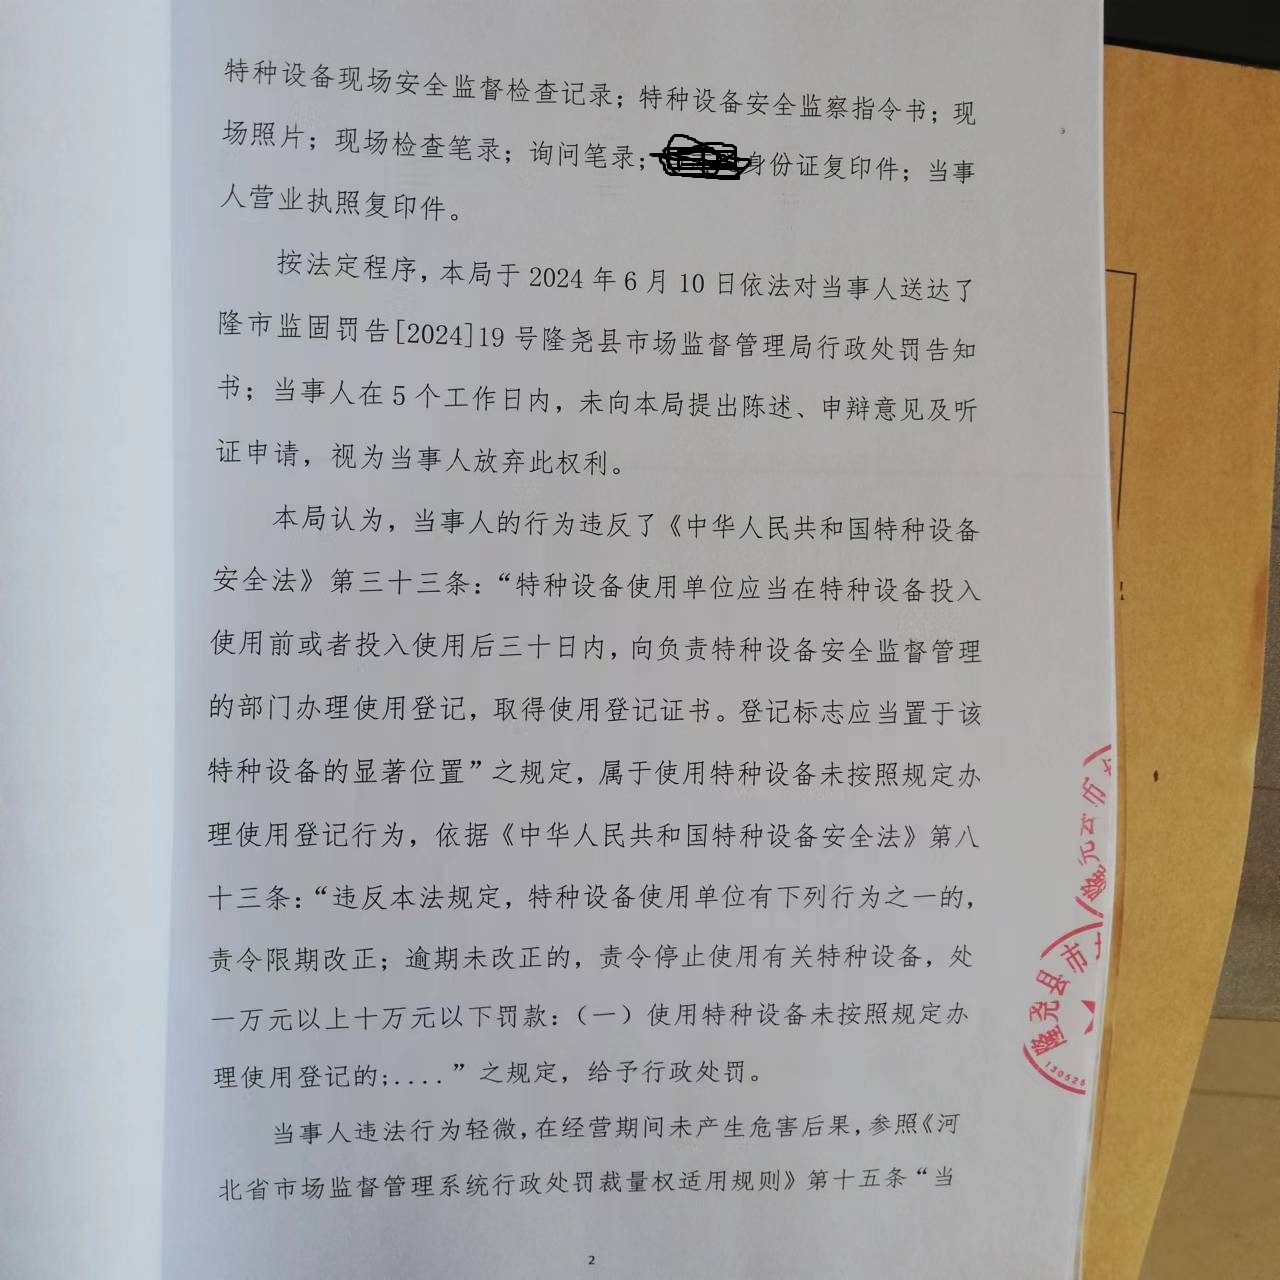 特种设备现场安全监督检查记录；特种设备安全监察指令书；现
场照片；现场检查笔录；询问笔录；身份证复印件；当事
人营业执照复印件。
按法定程序，本局于 2024 年 6 月 10 日依法对当事人送达了
隆市监固罚告[2024]19 号隆尧县市场监督管理局行政处罚告知
书；当事人在 5 个工作日内，未向本局提出陈述、申辩意见及听
证申请，视为当事人放弃此权利。
本局认为，当事人的行为违反了《中华人民共和国特种设备
安全法》第三十三条：“特种设备使用单位应当在特种设备投入
使用前或者投入使用后三十日内，向负责特种设备安全监督管理
的部门办理使用登记，取得使用登记证书。登记标志应当置于该
特种设备的显著位置”之规定，属于使用特种设备未按照规定办
理使用登记行为，依据《中华人民共和国特种设备安全法》第八
十三条：“违反本法规定，特种设备使用单位有下列行为之一的，
责令限期改正；逾期未改正的，责令停止使用有关特种设备，处
一万元以上十万元以下罚款：（一）使用特种设备未按照规定办
理使用登记的;....”之规定，给予行政处罚。
当事人违法行为轻微，在经营期间未产生危害后果，参照《河
北省市场监督管理系统行政处罚裁量权适用规则》第十五条“当
2
隆尧县市
130525